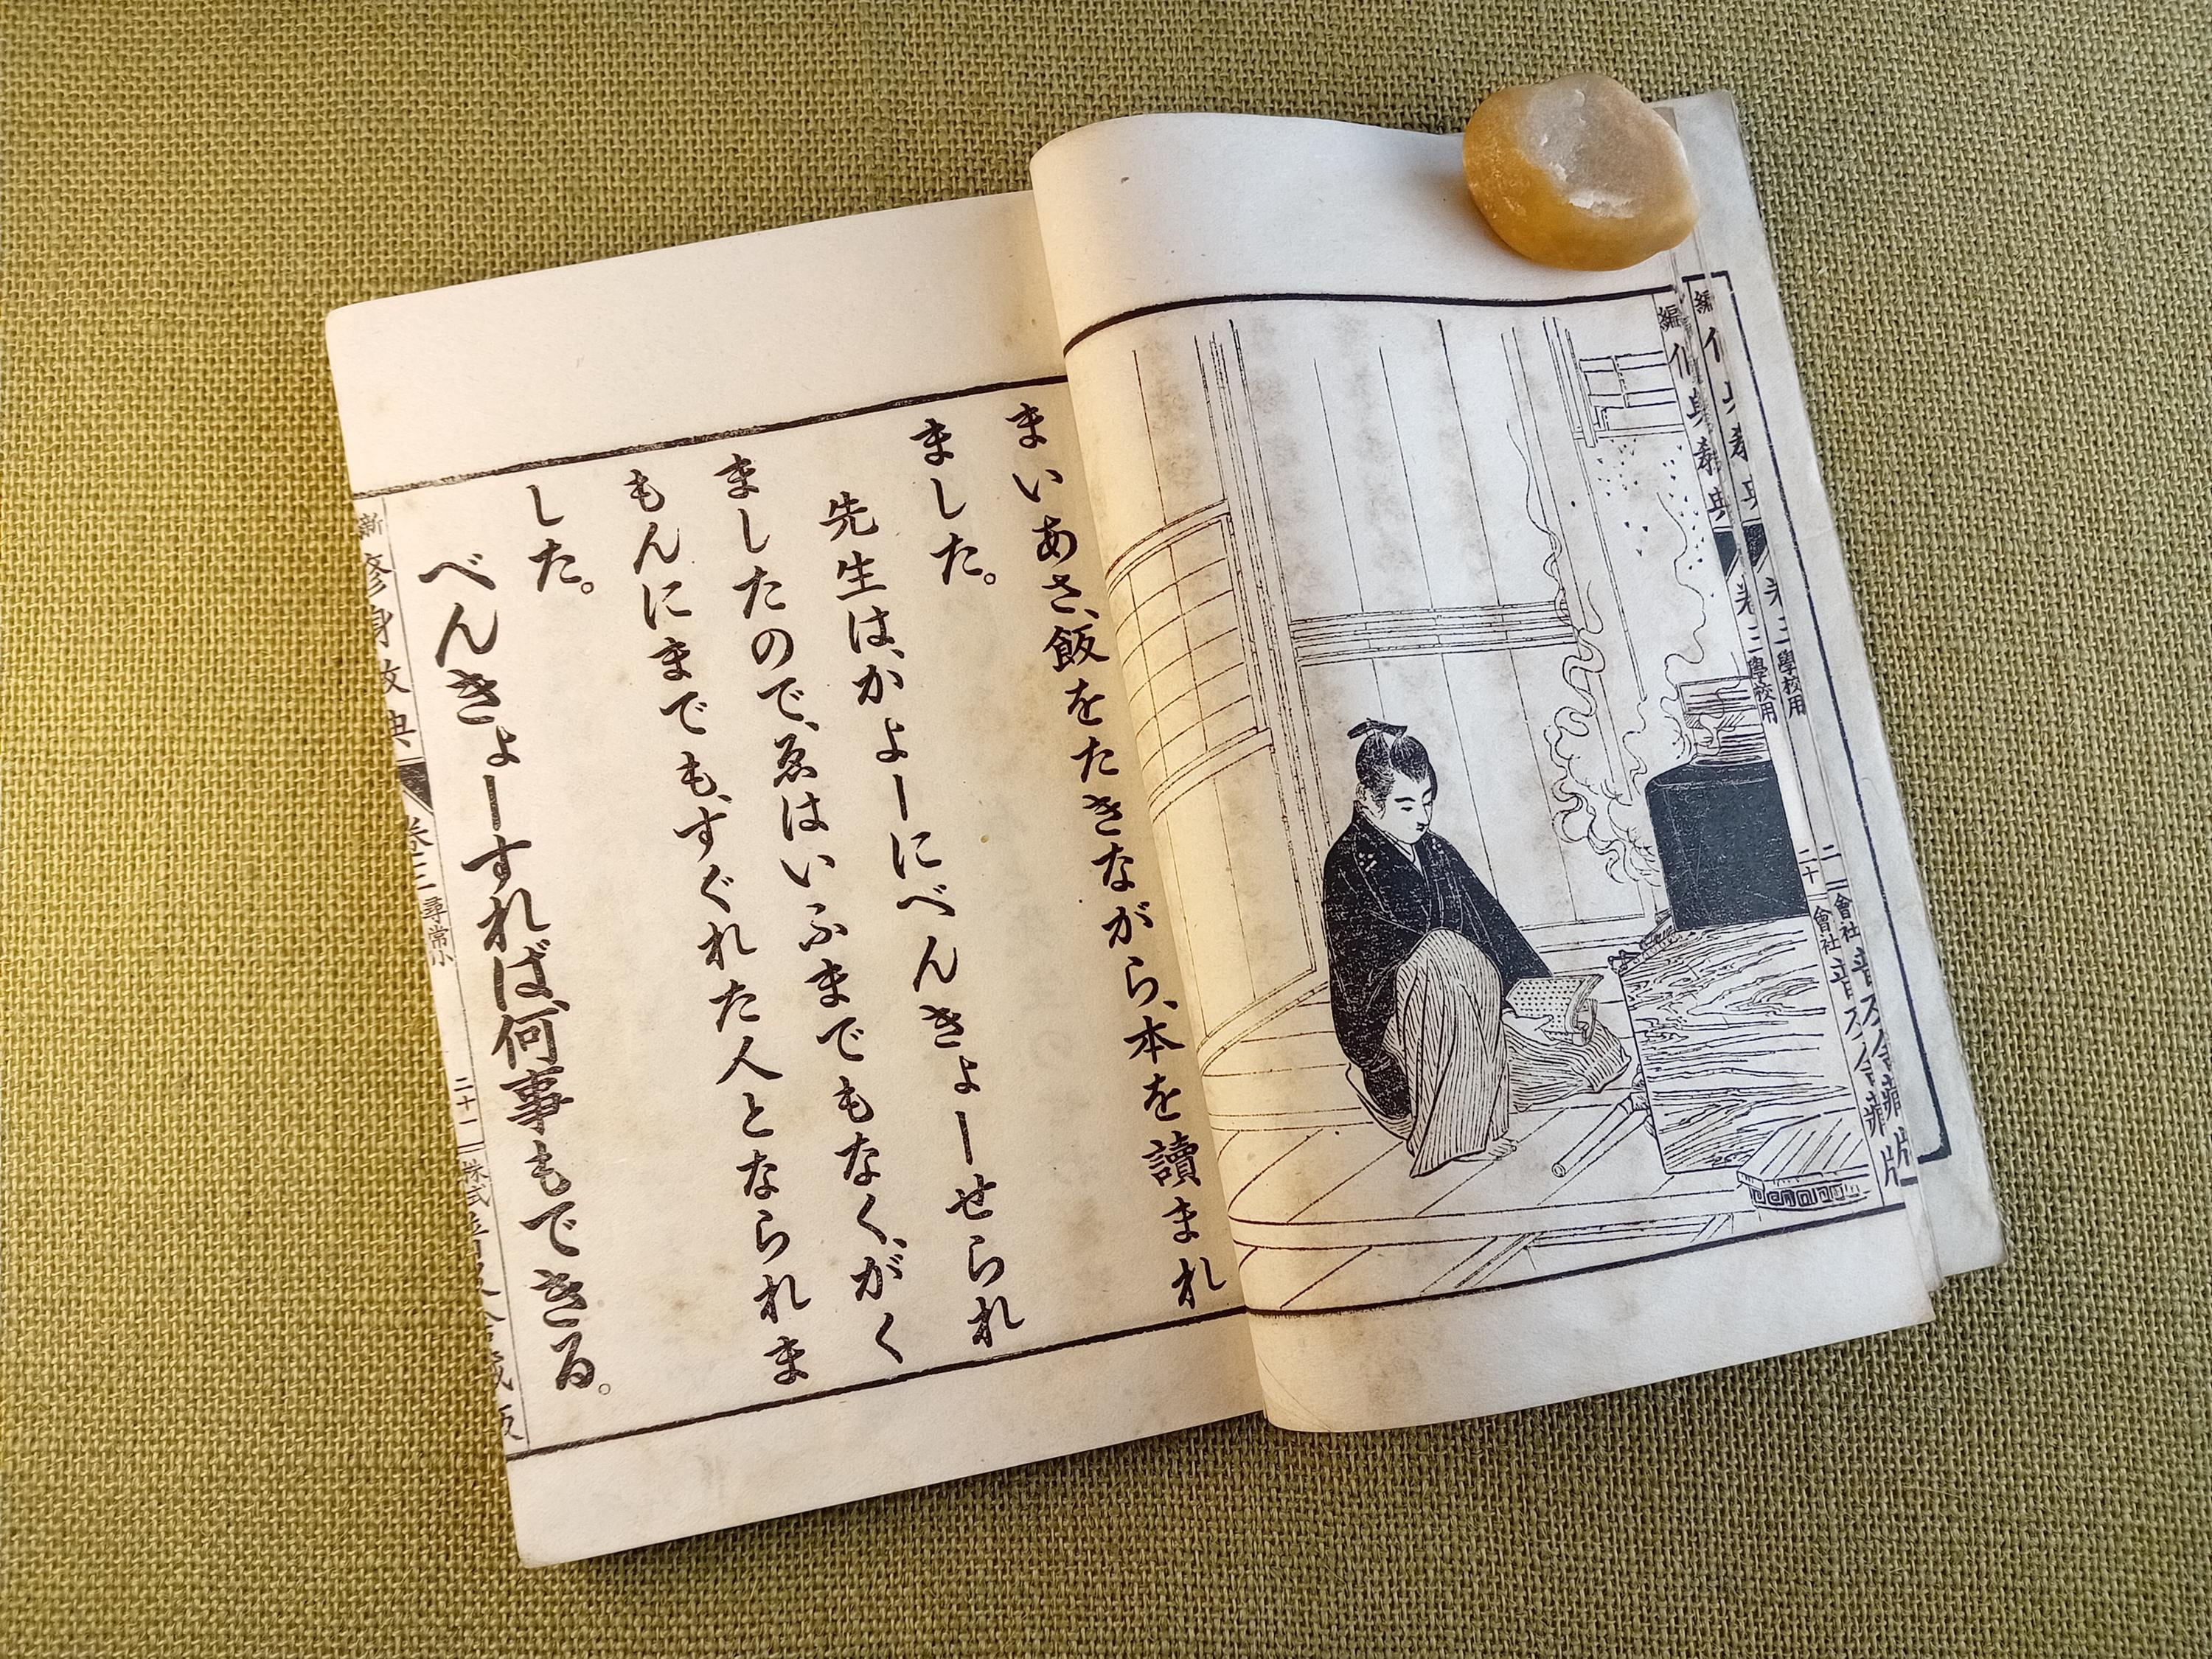 まいあさ、飯をたきながら、本を讀まれ
ました。
先生は、かよーにべんきょーせられ
ましたので、ゑはいふまでもなく、がく
もんにまでも、すぐれた人となられま
した。
べんきょーすれば、何事もできる。
新 修身教典 卷三 尋常小
二十二 株式
編 身教典 卷三 學校用
二十 會社 普及舍藏版